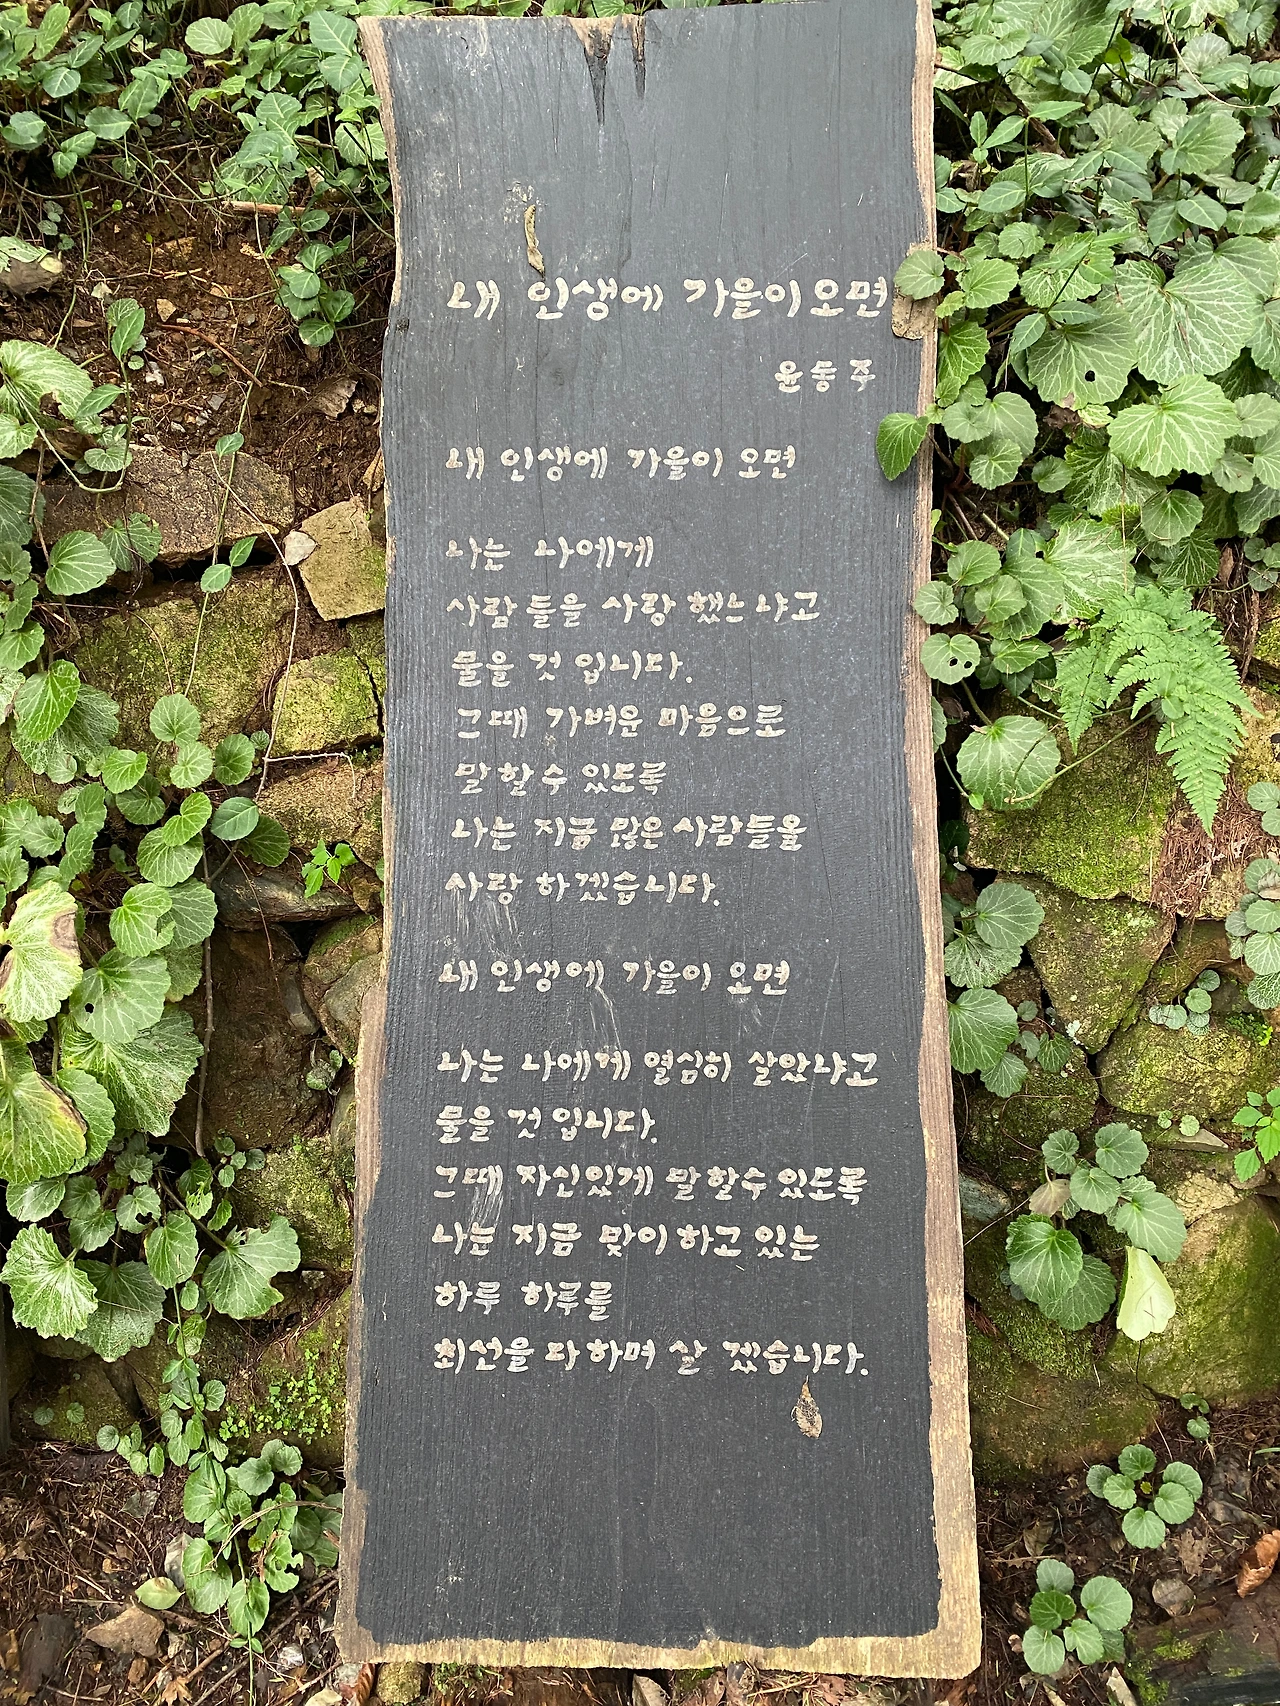 내 인생에 가을이 오면
윤동주
내 인생에 가을이 오면
나는 나에게
사람들을 사랑했느냐고
물을 것 입니다.
그때 가벼운 마음으로
말할 수 있도록
나는 지금 많은 사람들을
사랑 하겠습니다.
내 인생에 가을이 오면
나는 나에게 열심히 살았냐고
물을 것 입니다.
그때 자신있게 말할수 있도록
나는 지금 맞이하고 있는
하루 하루를
최선을 다하며 살 겠습니다.